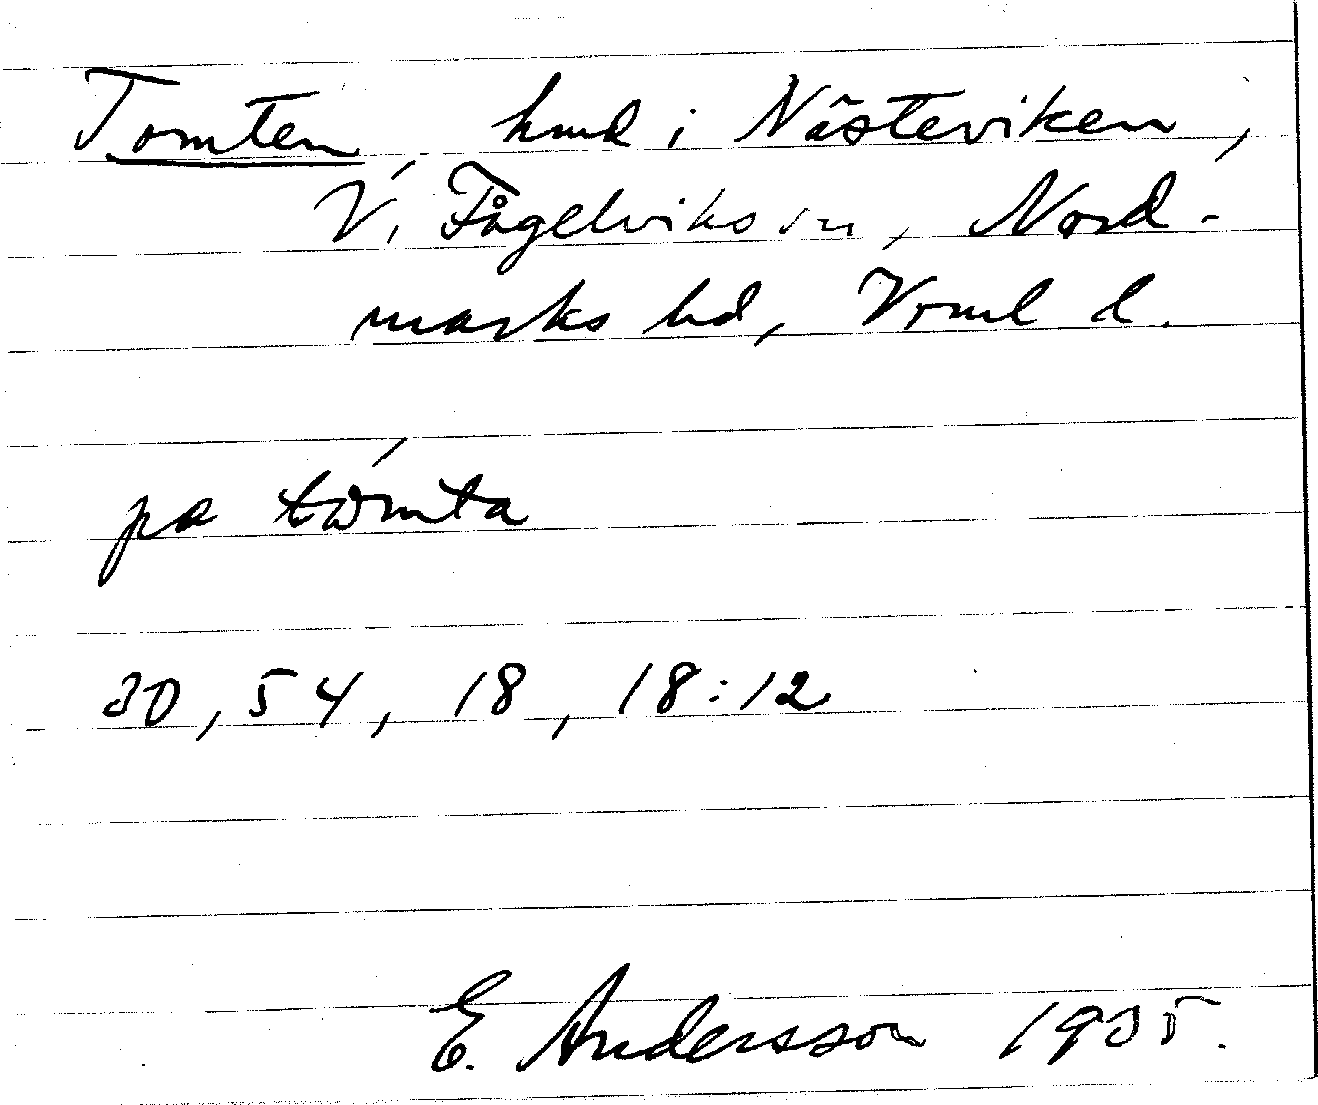 Tomten, hmd i Nästeviken,
V. Fågelviks sn, Nord-
marks hd, Vrml l.
pa tωmta
30, 54, 18, 18:12
E. Andersson 1935.